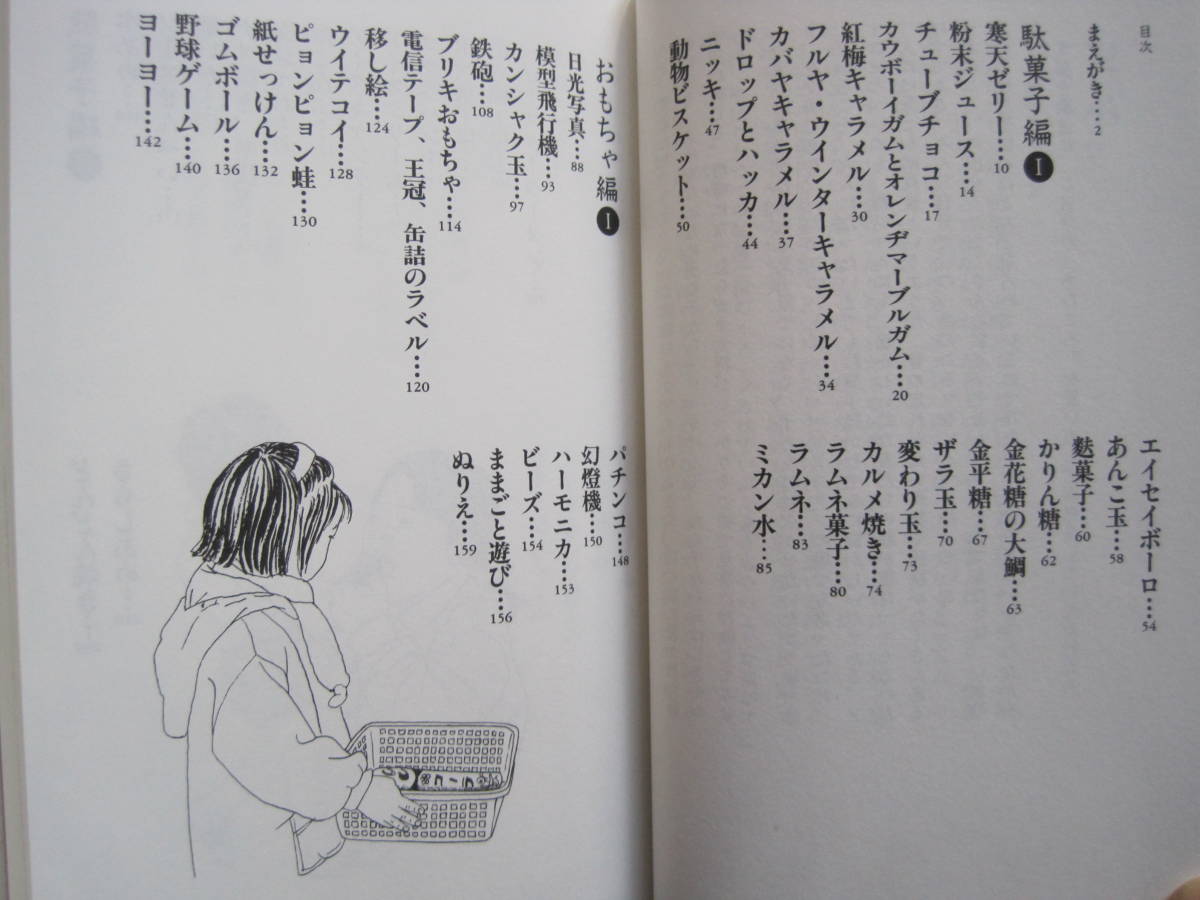 目次
まえがき…2
駄菓子編 I
寒天ゼリー…10
粉末ジュース…14
チューブチョコ…17
カウボーイガムとオレンヂマーブルガム…20
紅梅キャラメル…30
フルヤ・ウインターキャラメル…34
カバヤキャラメル…37
ドロップとハッカ…44
ニッキ…47
動物ビスケット…50
エイセイボーロ…54
あんこ玉…58
麩菓子…60
かりん糖…62
金花糖の大鯛…63
金平糖…67
ザラ玉…70
変わり玉…73
カルメ焼き…74
ラムネ菓子…80
ラムネ…83
ミカン水…85
おもちゃ編 I
日光写真…88
模型飛行機…93
カンシャク玉…97
鉄砲…108
ブリキおもちゃ…114
電信テープ、王冠、缶詰のラベル…120
移し絵…124
ウイテコイ…128
ピョンピョン蛙…130
紙せっけん…132
ゴムボール…136
野球ゲーム…140
ヨーヨー…142
パチンコ…148
幻燈機…150
ハーモニカ…153
ビーズ…154
ままごと遊び…156
ぬりえ…159